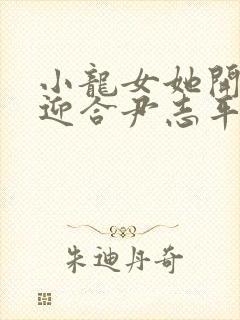 小龍女她開
迎合尹志平
朱迪丹奇